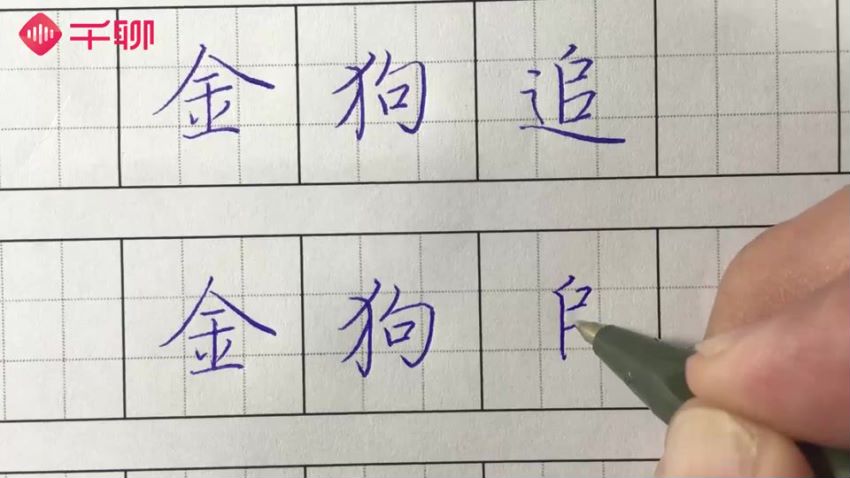 千聊
金狗追
金狗